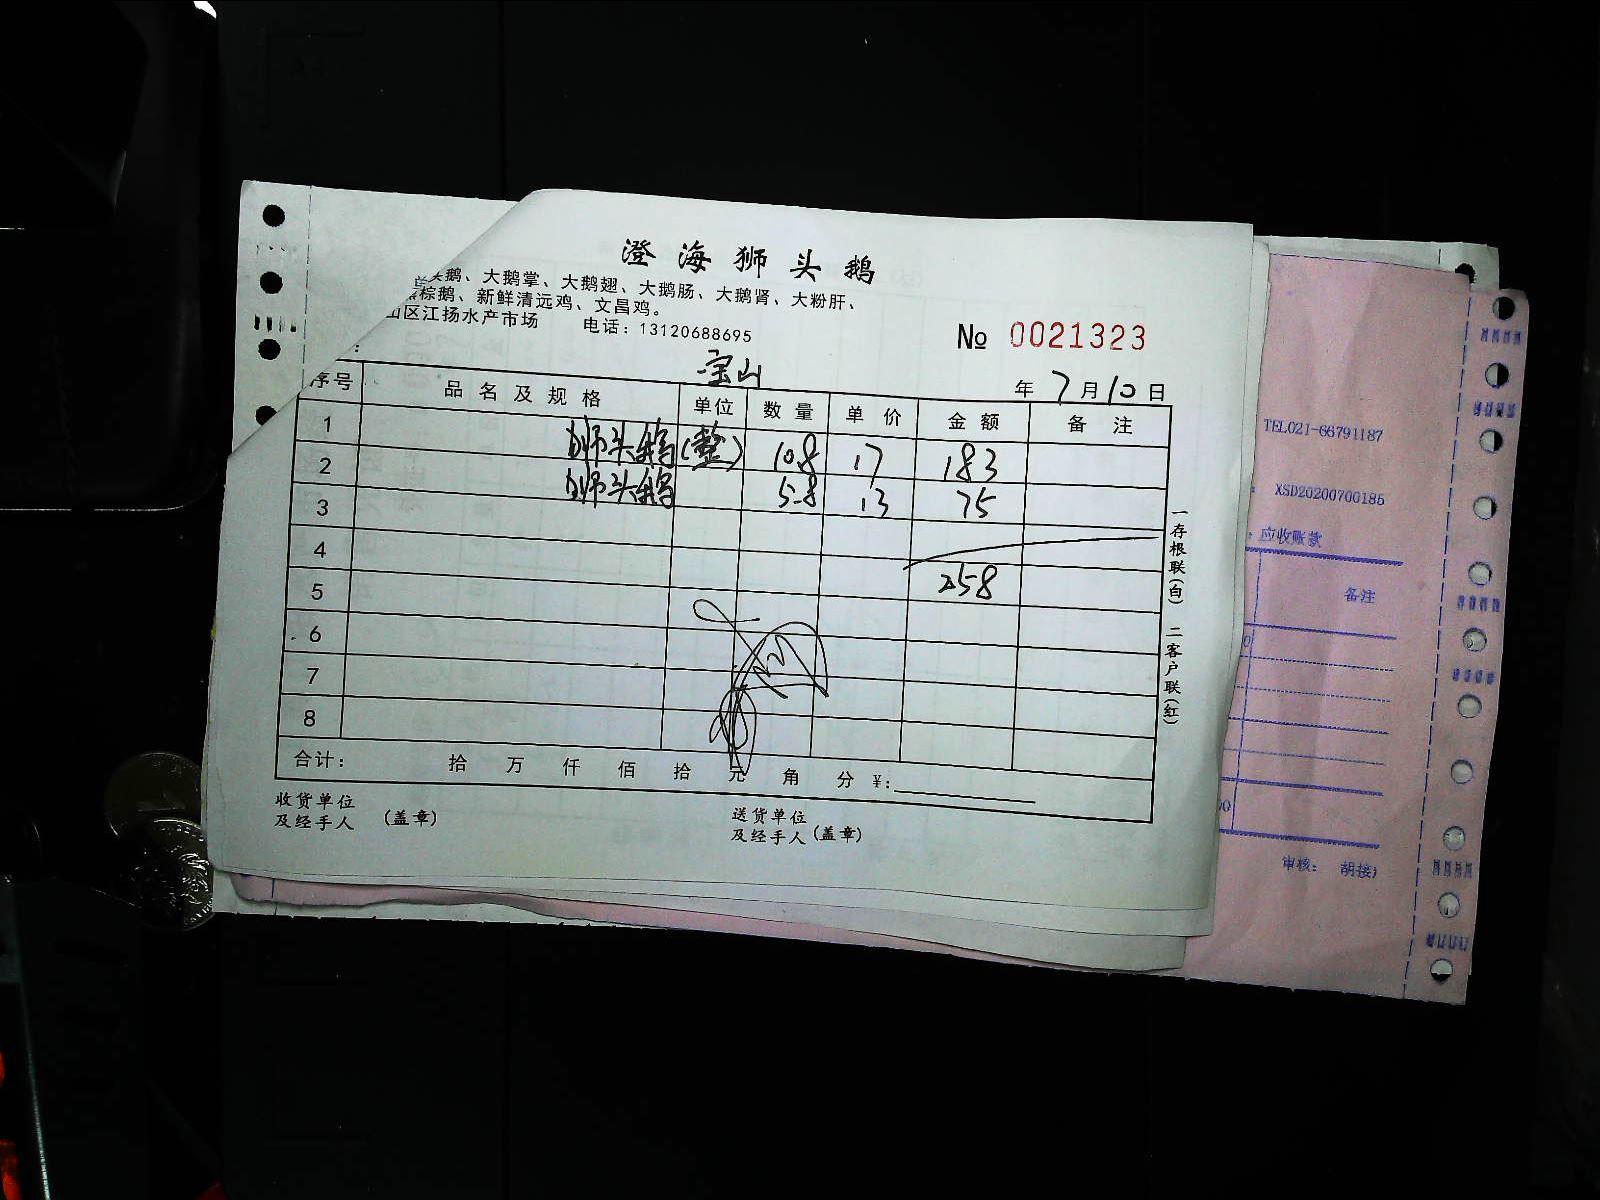 澄海狮头鹅
头鹅、大鹅掌、大鹅翅、大鹅肠、大鹅肾、大粉肝、
棕鹅、新鲜清远鸡、文昌鸡。
山区江扬水产市场 电话：13120688695
№ 0021323
宝山
年 7 月 10 日
序号 品名及规格 单位 数量 单价 金额 备注
1 狮头鹅(整) 10.8 17 183
2 狮头鹅 5.8 13 75
3
4 258
5
6
7
8
合计： 拾 万 仟 佰 拾 元 角 分 ¥:
收货单位
及经手人 (盖章)
送货单位
及经手人 (盖章)
一存根联(白) 二客户联(红)
TEL021-66791187
XSD20200700185
应收账款
备注
审核： 胡接